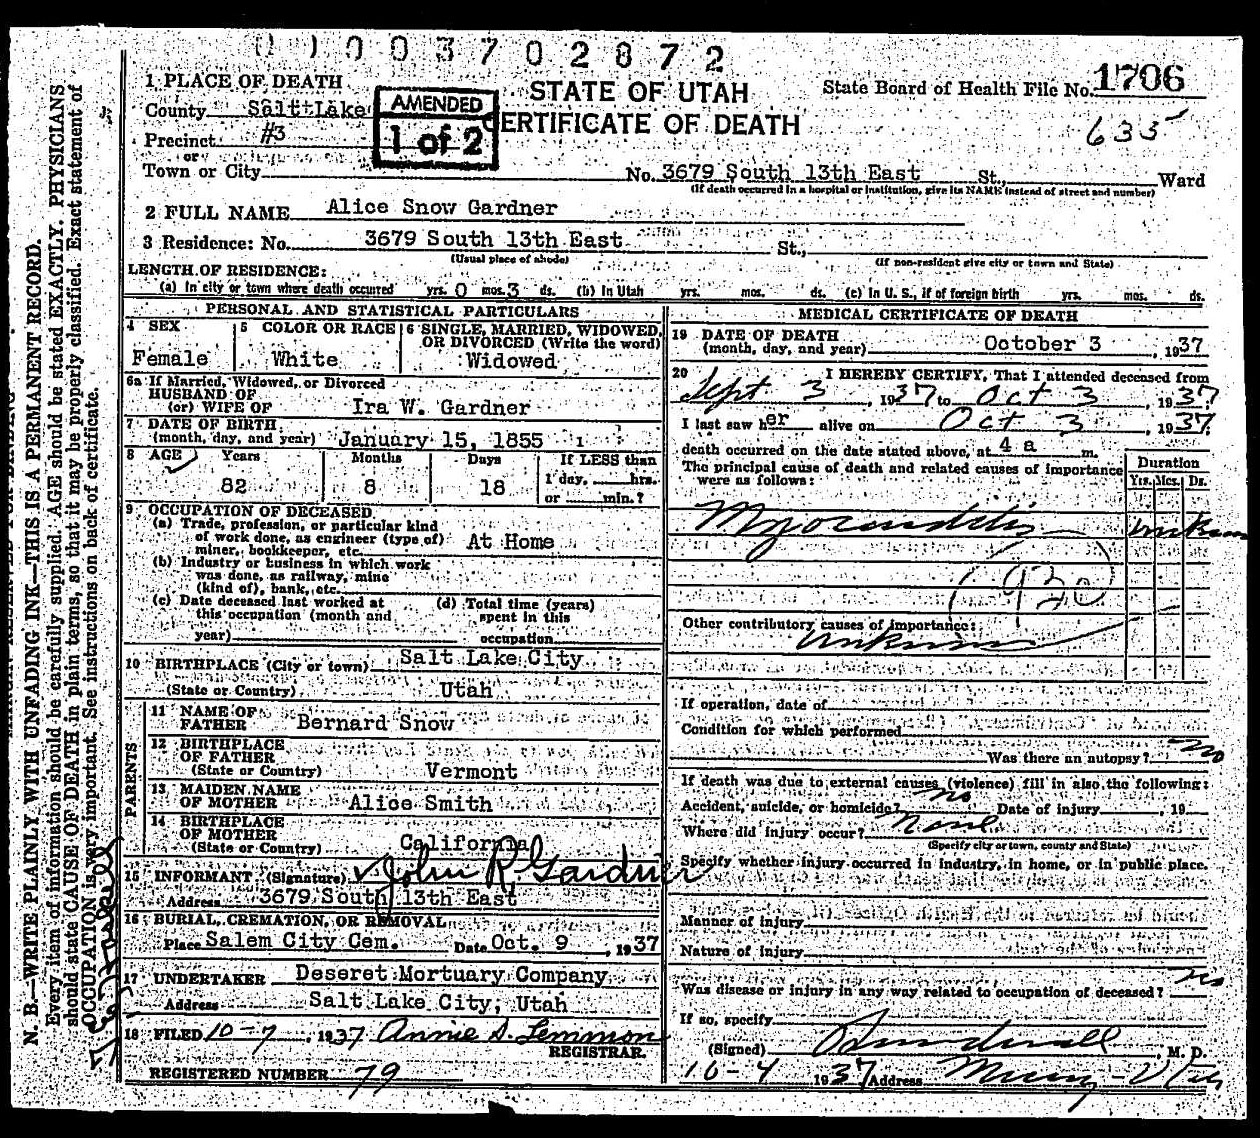 0 1 0 0 3 7 0 2 8 7 2
1 PLACE OF DEATH
STATE OF UTAH
CERTIFICATE OF DEATH
State Board of Health File No. 1706
635
County Salt Lake
AMENDED
1 of 2
Precinct #3
or
Town or City No. 3679 South 13th East St., Ward
(If death occurred in a hospital or institution, give its NAME instead of street and number)
2 FULL NAME Alice Snow Gardner
3 Residence: No. 3679 South 13th East St.,
(Usual place of abode) (If non-resident give city or town and State)
LENGTH OF RESIDENCE:
(a) In city or town where death occurred yrs. 0 mos. 3 ds. (b) In Utah yrs. mos. ds. (c) In U. S., if of foreign birth yrs. mos. ds.
PERSONAL AND STATISTICAL PARTICULARS
4 SEX
Female
5 COLOR OR RACE
White
6 SINGLE, MARRIED, WIDOWED,
OR DIVORCED (Write the word)
Widowed
6a If Married, Widowed, or Divorced
HUSBAND OF
(or) WIFE OF Ira W. Gardner
7 DATE OF BIRTH
(month, day, and year) January 15, 1855
8 AGE Years Months Days If LESS than
82 8 18 1 day, hrs.
or min.?
9 OCCUPATION OF DECEASED
(a) Trade, profession, or particular kind
of work done, as engineer (type of)
miner, bookkeeper, etc. At Home
(b) Industry or business in which work
was done, as railway, mine
(kind of), bank, etc.
(c) Date deceased last worked at
this occupation (month and
year)
(d) Total time (years)
spent in this
occupation
10 BIRTHPLACE (City or town) Salt Lake City
(State or Country) Utah
PARENTS
11 NAME OF
FATHER Bernard Snow
12 BIRTHPLACE
OF FATHER
(State or Country) Vermont
13 MAIDEN NAME
OF MOTHER Alice Smith
14 BIRTHPLACE
OF MOTHER
(State or Country) California
15 INFORMANT (Signature) John R. Gardner
Address 3679 South 13th East
16 BURIAL, CREMATION, OR REMOVAL
Place Salem City Cem. Date Oct. 9, 1937
17 UNDERTAKER Deseret Mortuary Company
Address Salt Lake City, Utah
18 FILED 10-7, 1937 Annie S. Lemmon
REGISTRAR.
REGISTERED NUMBER 79
MEDICAL CERTIFICATE OF DEATH
19 DATE OF DEATH
(month, day, and year) October 3, 1937
20 I HEREBY CERTIFY, That I attended deceased from
Sept 3, 1937 to Oct 3, 1937
I last saw her alive on Oct 3, 1937.
death occurred on the date stated above, at 4 a m.
The principal cause of death and related causes of importance
were as follows:
Duration
Yrs. Mos. Ds.
Myocarditis unknown
930
Other contributory causes of importance:
unknown
If operation, date of
Condition for which performed
Was there an autopsy? no
If death was due to external causes (violence) fill in also the following:
Accident, suicide, or homicide? no Date of injury, 19
Where did injury occur? None
(Specify city or town, county and State)
Specify whether injury occurred in industry, in home, or in public place.
Manner of injury
Nature of injury
Was disease or injury in any way related to occupation of deceased? no
If so, specify
(Signed) , M. D.
10-4 1937 Address Murray-Utah
N. B.—WRITE PLAINLY WITH UNFADING INK—THIS IS A PERMANENT RECORD.
Every item of information should be carefully supplied. AGE should be stated EXACTLY. PHYSICIANS
should state CAUSE OF DEATH in plain terms, so that it may be properly classified. Exact statement of
OCCUPATION is very important. See instructions on back of certificate.